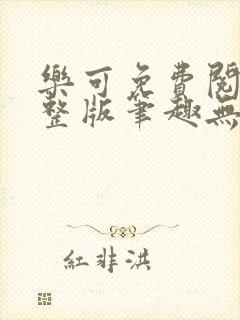 樂可免費閱
整版筆趣無
紅非洪